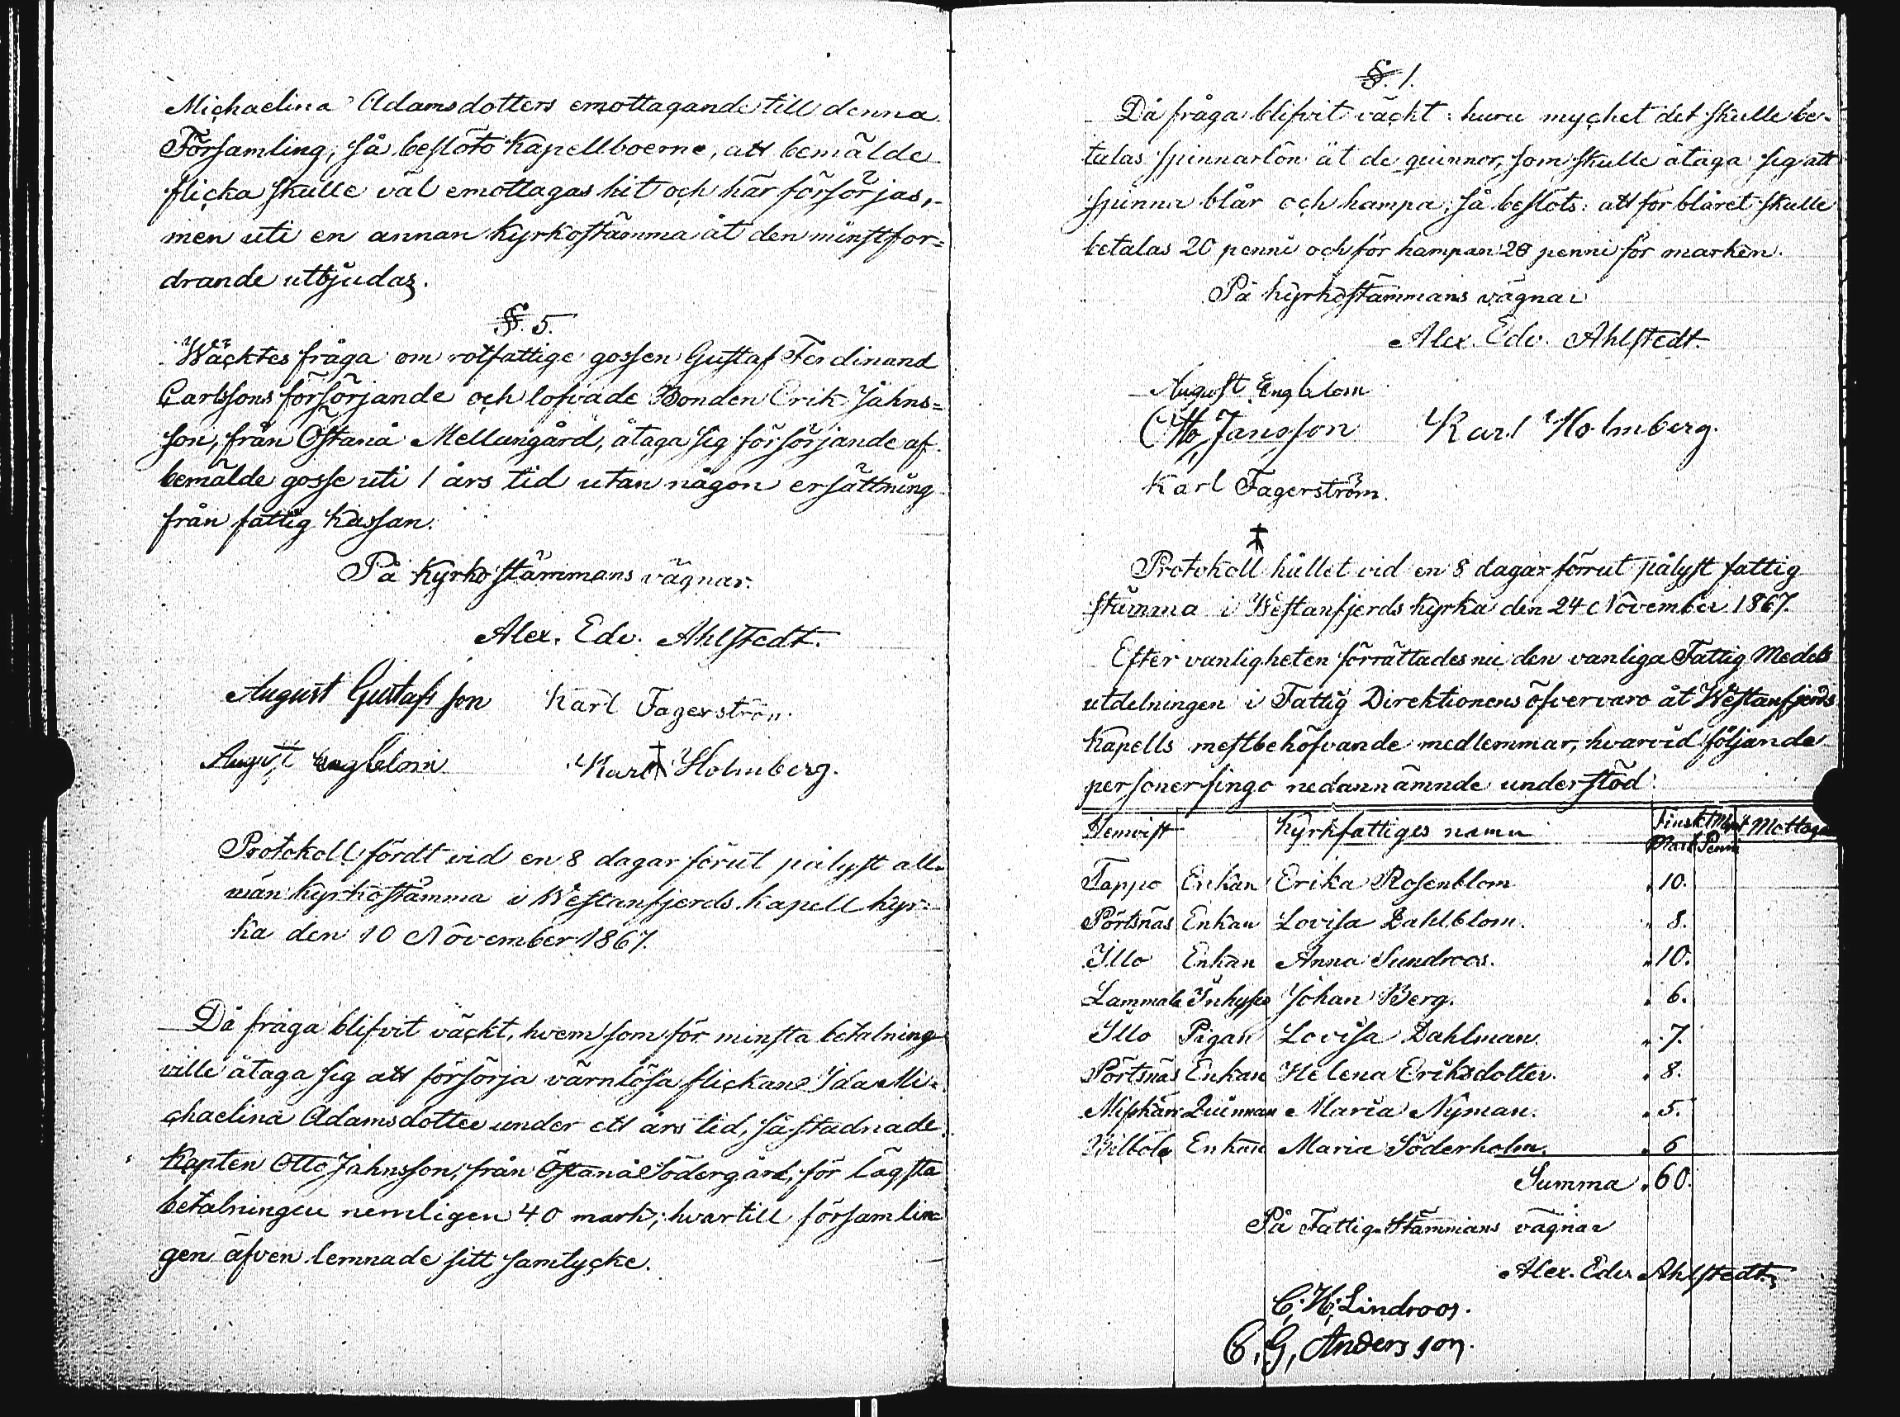 Michaelina Adamsdotters emottagande till denna
Församling, så beslöto Kapellboerne, att bemälde
flicka skulle väl emottagas hit och här försörjas,
men uti en annan Kyrkostämma åt den minstfor=
drande utbjudas.
§. 5.
Wäcktes fråga om rotfattige gossen Gustaf Ferdinand
Carlssons försörjande och lofvade Bonden Erik Jahns=
son, från Östanå Mellangård, åtaga sig försörjande af
bemälde gosse uti 1 års tid utan någon ersättning
från fattig Kassan.
På Kyrkostämmans vägnar.
Alex. Edv. Ahlstedt.
August Gustafsson Karl Fagerström.
August Engblom Karl Holmberg.
Protokoll fördt vid en 8 dagar förut pålyst all=
män Kyrkostämma i Westanfjerds Kapell Kyr=
ka den 10 November 1867.
Då fråga blifvit väckt, hvem som för minsta betalning
ville åtaga sig att försörja värnlösa flickan Ida Mi=
chaelina Adamsdotter under ett års tid, så stadnade
Kapten Otto Jahnsson, från Östanå Södergård, för lägsta
betalningen nemligen 40 mark; hvartill församlin=
gen äfven lemnade sitt samtycke.
§. 1.
Då fråga blifvit väckt: huru mycket det skulle be=
talas spinnarlön åt de quinnor, som skulle åtaga sig att
spinna blår och hampa, så beslöts: att för blåret skulle
betalas 20 penni och för hampan 28 penni för marken.
På Kyrkostämmans vägnar
Alex. Edv. Ahlstedt.
August Engblom
Otto Jansson Karl Holmberg.
Karl Fagerström.
Protokoll hållet vid en 8 dagar förut pålyst fattig
stämma i Westanfjerds Kyrka den 24 November 1867.
Efter vanligheten förrättades nu den vanliga Fattig Medels
utdelningen i Fattig Direktionens öfvervaro åt Westanfjerds
Kapells mestbehöfvande medlemmar, hvarvid följande
personer fingo nedannämnde understöd:
Hemvist Kyrkfattiges namn Finskt Mynt Mottag
Mark Penni
Tappo Enkan Erika Rosenblom " 10.
Pörtsnäs Enkan Lovisa Dahlblom. " 8.
Illo Enkan Anna Sundroos. " 10.
Lammala Inhyses Johan Berg. " 6.
Illo Pigan Lovisa Dahlman. " 7.
Pörtsnäs Enkan Helena Eriksdotter. " 8.
Misskärr Quinnan Maria Nyman. " 5.
Billböle Enkan Maria Söderholm. " 6
Summa " 60.
På Fattig Stämmans vägnar
Alex. Edv. Ahlstedt.
C. H. Lindroos.
C. G. Andersson.